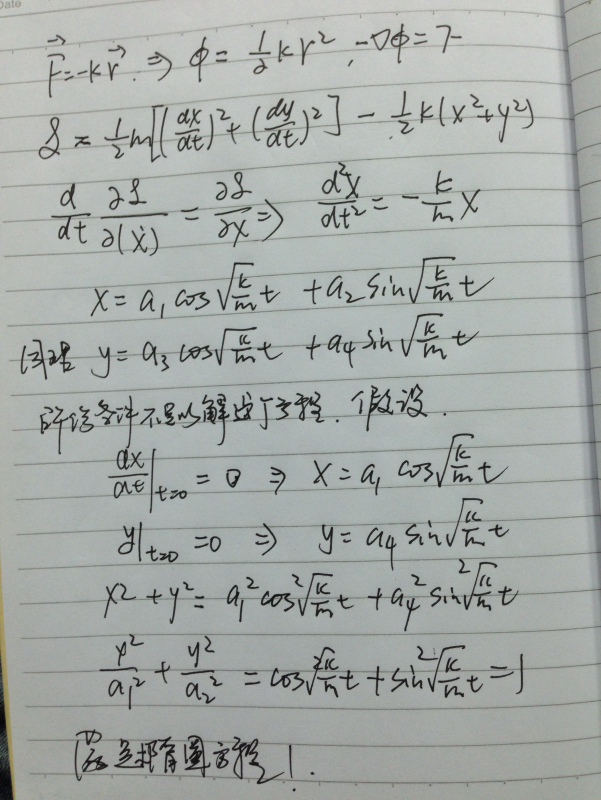 Date
F⃗=-kr⃗. ⇒ φ = 1/2 k r², -∇φ = F
L = 1/2 m[(dx/dt)² + (dy/dt)²] - 1/2 k(x²+y²)
d/dt ∂L/∂(ẋ) = ∂L/∂x ⇒ d²x/dt² = -k/m x
x = a₁ cos√(k/m) t + a₂ sin√(k/m) t
同理 y = a₃ cos√(k/m) t + a₄ sin√(k/m) t
所给条件不足以解这个方程. 假设.
dx/dt|t=0 = 0 ⇒ x = a₁ cos√(k/m) t
y|t=0 = 0 ⇒ y = a₄ sin√(k/m) t
x² + y² = a₁² cos²√(k/m) t + a₄² sin²√(k/m) t
x²/a₁² + y²/a₂² = cos²√(k/m) t + sin²√(k/m) t = 1
是椭圆方程!